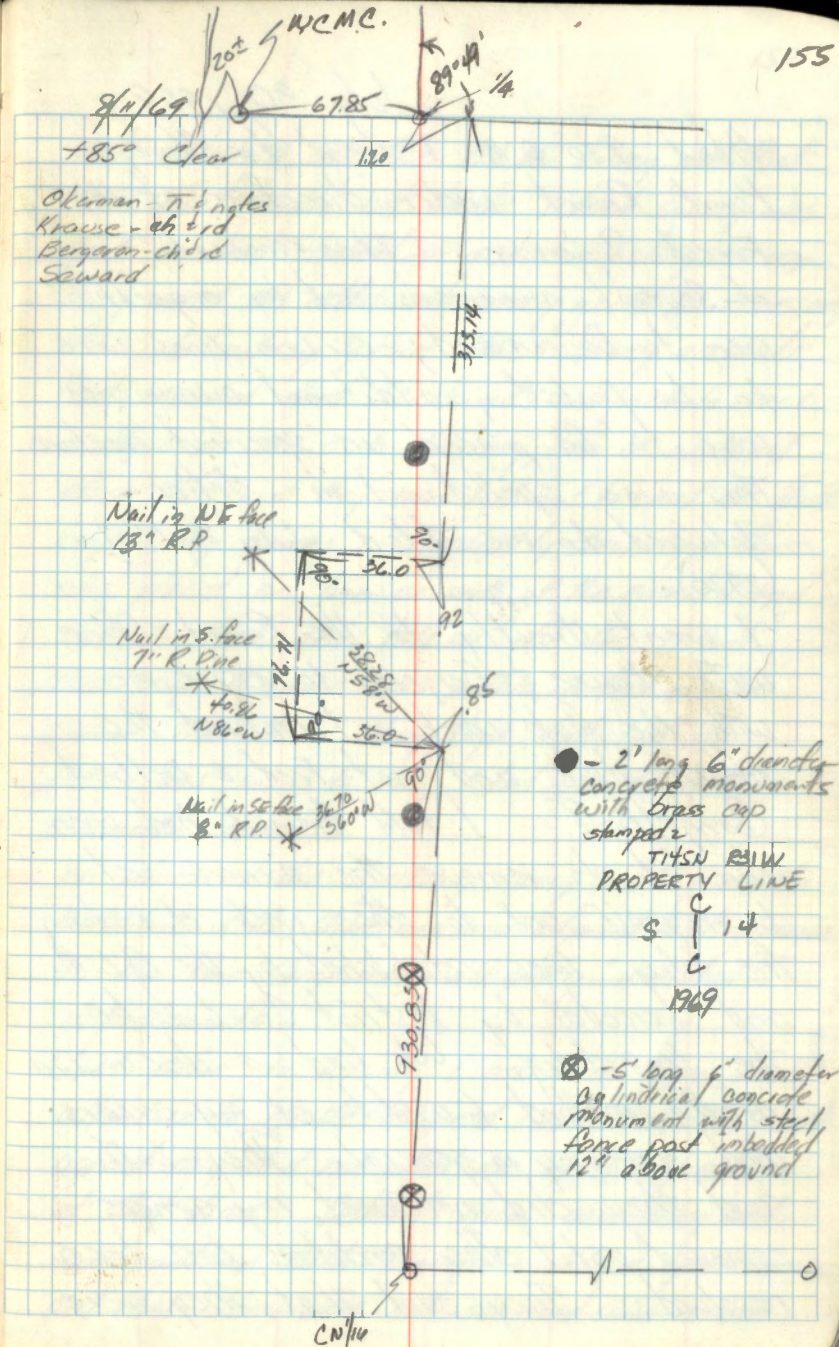 155
W.C.M.C.
20±
89°49'
1/4
67.85
8/11/69
+85° Clear
1.20
Okerman - π & notes
Krause - ch & rd
Bergeron - ch & rd
Seward
313.14
Nail in NE face
13" R.P.
90°
90°
36.0
.92
Nail in S. face
7" R. Pine
76.71
38.28
N58°W
40.86
N86°W
.85
90°
36.0
90°
Nail in SE face
8" R.P.
36.70
S60°W
- 2' long 6" diameter
concrete monuments
with brass cap
stamped:
T145N R31W
PROPERTY LINE
C
S | 14
C
1969
930.85
- 5' long 6" diameter
cylindrical concrete
monument with steel
fence post imbedded
12" above ground
CN 1/16